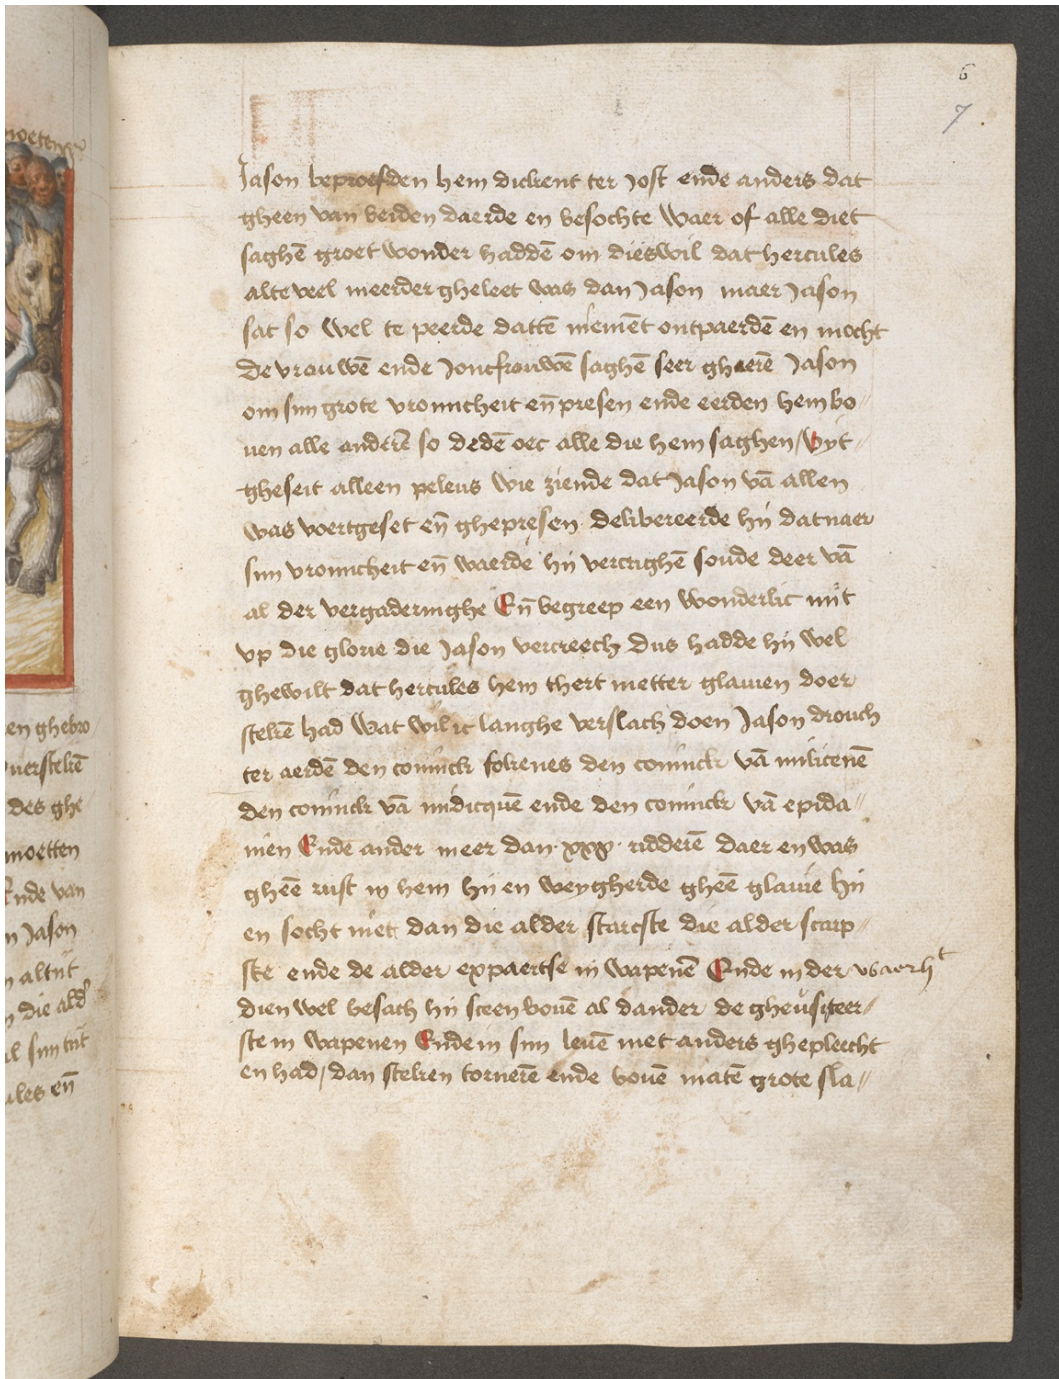 6
7
Jason beproefden hem dickent ter Jost ende anders dat
gheen van beiden daerde en besochte Waer of alle diet
saghē groet wonder haddē om dieswil dat hercules
alte veel meerder gheleet was dan Jason maer Jason
sat so wel te peerde dattē niemēt ontpaerdē en mocht
De vrouwē ende Joncfrouwē saghē seer gheerē Jason
om sijn grote vromicheit eñ presen ende eerden hem bo〃
uen alle anderē so dedē oec alle die hem saghen/ Vyt〃
gheseit alleen peleus wie ziende dat Jason vā allen
was voertgeset eñ ghepresen delibereerde hij dat naer
sijn vromicheit eñ waerde hij vercrighē soude deer vā
al der vergaderinghe Eñ begreep een wonderlic nijt
vp die glorie die Jason vercreech Dus hadde hij wel
ghewilt dat hercules hem thert metter glauien doer
stekē had Wat wil ic langhe verslach doen Jason drouch
ter aerdē den coninck fokenes den coninck vā milicenē
den coninck vā midicquē ende den coninck vā epida〃
men Ende ander meer dan · xxx · ridderē daer en was
gheē rust in hem hij en weygherde gheē glauie hij
en socht niet dan die alder starcste die alder scarp〃
ste ende de alder expaertse in wapenē Ende in der waerht
dien wel besach hij sceen bouē al dander de gheusiteer〃
ste in wapenen Ende in sijn leuē niet anders ghepleecht
en had/ dan steken tornerē ende bouē matē grote sla〃
en ghebro
uerstekē
des ghe
moetten
Ende van
n Jason
n altijt
die ald
al sijn tijt
ules eñ